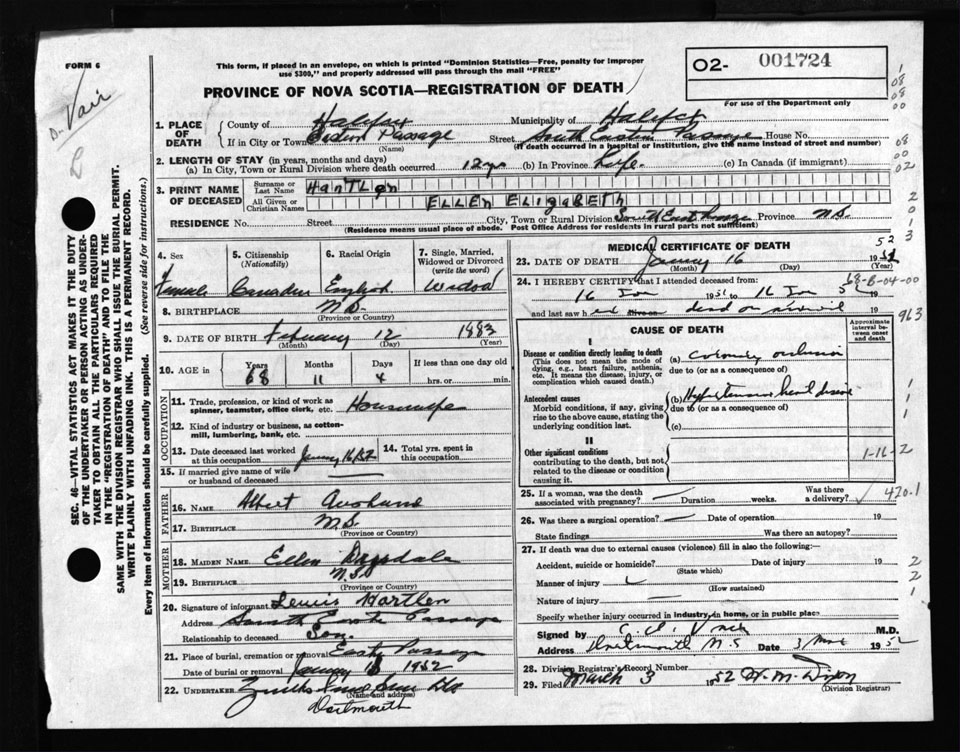 FORM 6
This form, if placed in an envelope, on which is printed "Dominion Statistics—Free, penalty for improper
use $300," and properly addressed will pass through the mail "FREE"
PROVINCE OF NOVA SCOTIA—REGISTRATION OF DEATH
O2- 001724
For use of the Department only
Dr. Vair
SEC. 46—VITAL STATISTICS ACT MAKES IT THE DUTY
OF THE UNDERTAKER OR PERSON ACTING AS UNDER-
TAKER TO OBTAIN ALL THE PARTICULARS REQUIRED
IN THE "REGISTRATION OF DEATH" AND TO FILE THE
SAME WITH THE DIVISION REGISTRAR WHO SHALL ISSUE THE BURIAL PERMIT.
WRITE PLAINLY WITH UNFADING INK. THIS IS A PERMANENT RECORD.
Every item of information should be carefully supplied. (See reverse side for instructions.)
1. PLACE OF DEATH
County of Halifax Municipality of Halifax
If in City or Town Eastern Passage Street South Eastern Passage House No.
(Name) (If death occurred in a hospital or institution, give the name instead of street and number)
2. LENGTH OF STAY (in years, months and days)
(a) In City, Town or Rural Division where death occurred 12 yrs (b) In Province Life. (c) In Canada (if immigrant)
3. PRINT NAME OF DECEASED
Surname or Last Name HartLen
All Given or Christian Names ELLEN ELIZABETH
RESIDENCE No. Street City, Town or Rural Division South East Passage Province N.S.
(Residence means usual place of abode. Post Office Address for residents in rural parts not sufficient)
4. Sex Female
5. Citizenship (Nationality) Canadian
6. Racial Origin English
7. Single, Married, Widowed or Divorced (write the word) Widow
8. BIRTHPLACE N.S.
(Province or Country)
9. DATE OF BIRTH February 12 1883
(Month) (Day) (Year)
10. AGE in Years 68 Months 11 Days 4 If less than one day old hrs. or min.
OCCUPATION
11. Trade, profession, or kind of work as spinner, teamster, office clerk, etc. Housewife
12. Kind of industry or business, as cotton-mill, lumbering, bank, etc.
13. Date deceased last worked at this occupation January 16/52
14. Total yrs. spent in this occupation
15. If married give name of wife or husband of deceased
FATHER
16. Name Albert
17. BIRTHPLACE N.S.
(Province or Country)
MOTHER
18. MAIDEN NAME Ellen
19. BIRTHPLACE N.S.
(Province or Country)
20. Signature of informant Lewis Hartlen
Address South East Passage
Relationship to deceased Son.
21. Place of burial, cremation or removal East Passage
Date of burial or removal January 1952
22. UNDERTAKER
(Name and address)
Dartmouth
MEDICAL CERTIFICATE OF DEATH
23. DATE OF DEATH January 16 1952
(Month) (Day) (Year)
24. I HEREBY CERTIFY that I attended deceased from:
16 Jan 1951 to 16 Jan 19
and last saw h er alive on dead on arrival 19
CAUSE OF DEATH
Approximate interval between onset and death
I
Disease or condition directly leading to death
(This does not mean the mode of dying, e.g., heart failure, asthenia, etc. It means the disease, injury, or complication which caused death.)
(a) Coronary occlusion
due to (or as a consequence of)
Antecedent causes
Morbid conditions, if any, giving rise to the above cause, stating the underlying condition last.
(b) Hypertensive heart disease
due to (or as a consequence of)
(c)
II
Other significant conditions
contributing to the death, but not related to the disease or condition causing it.
1-11-2
420.1
963
25. If a woman, was the death associated with pregnancy? Duration weeks. Was there a delivery?
26. Was there a surgical operation? Date of operation 19
State findings Was there an autopsy?
27. If death was due to external causes (violence) fill in also the following:—
Accident, suicide or homicide? Date of injury 19
(State which)
Manner of injury
(How sustained)
Nature of injury
Specify whether injury occurred in industry, in home, or in public place
Signed by M.D.
Address Dartmouth N.S Date 3 Mar 1952
28. Division Registrar's Record Number
29. Filed March 3 1952 W. M. Dixon
(Division Registrar)